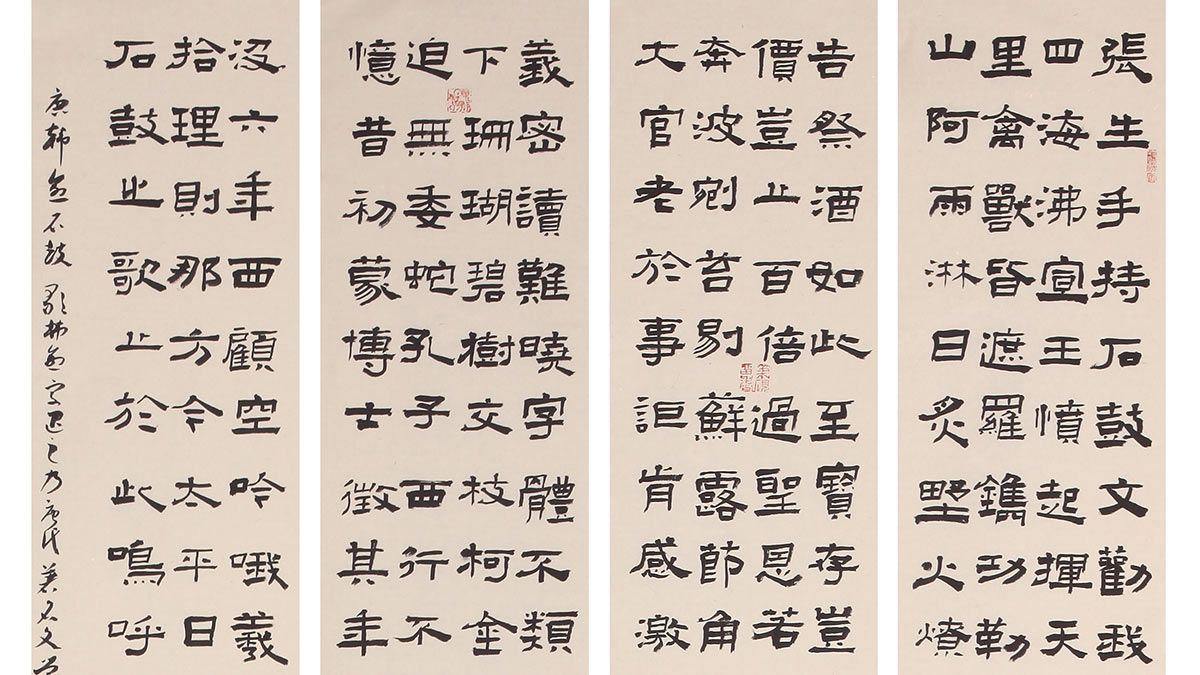 張生手持石鼓文勸我
四海沸宣王憤起揮天
里禽獸皆遮羅鐫功勒
山阿雨淋日炙野火燎
告祭酒如此至寶存豈
價豈止百倍過聖恩若
奔波剜苔剔蘚露節角
大官老於事詎肯感激
義密讀難曉字體不類
下珊瑚碧樹交枝柯金
迫無委蛇孔子西行不
憶昔初蒙博士徵其年
没六年西顧空吟哦羲
拾理則那方今太平日
石鼓之歌止於此嗚呼
唐韩愈石鼓歌韩愈字退之乃唐代著名文